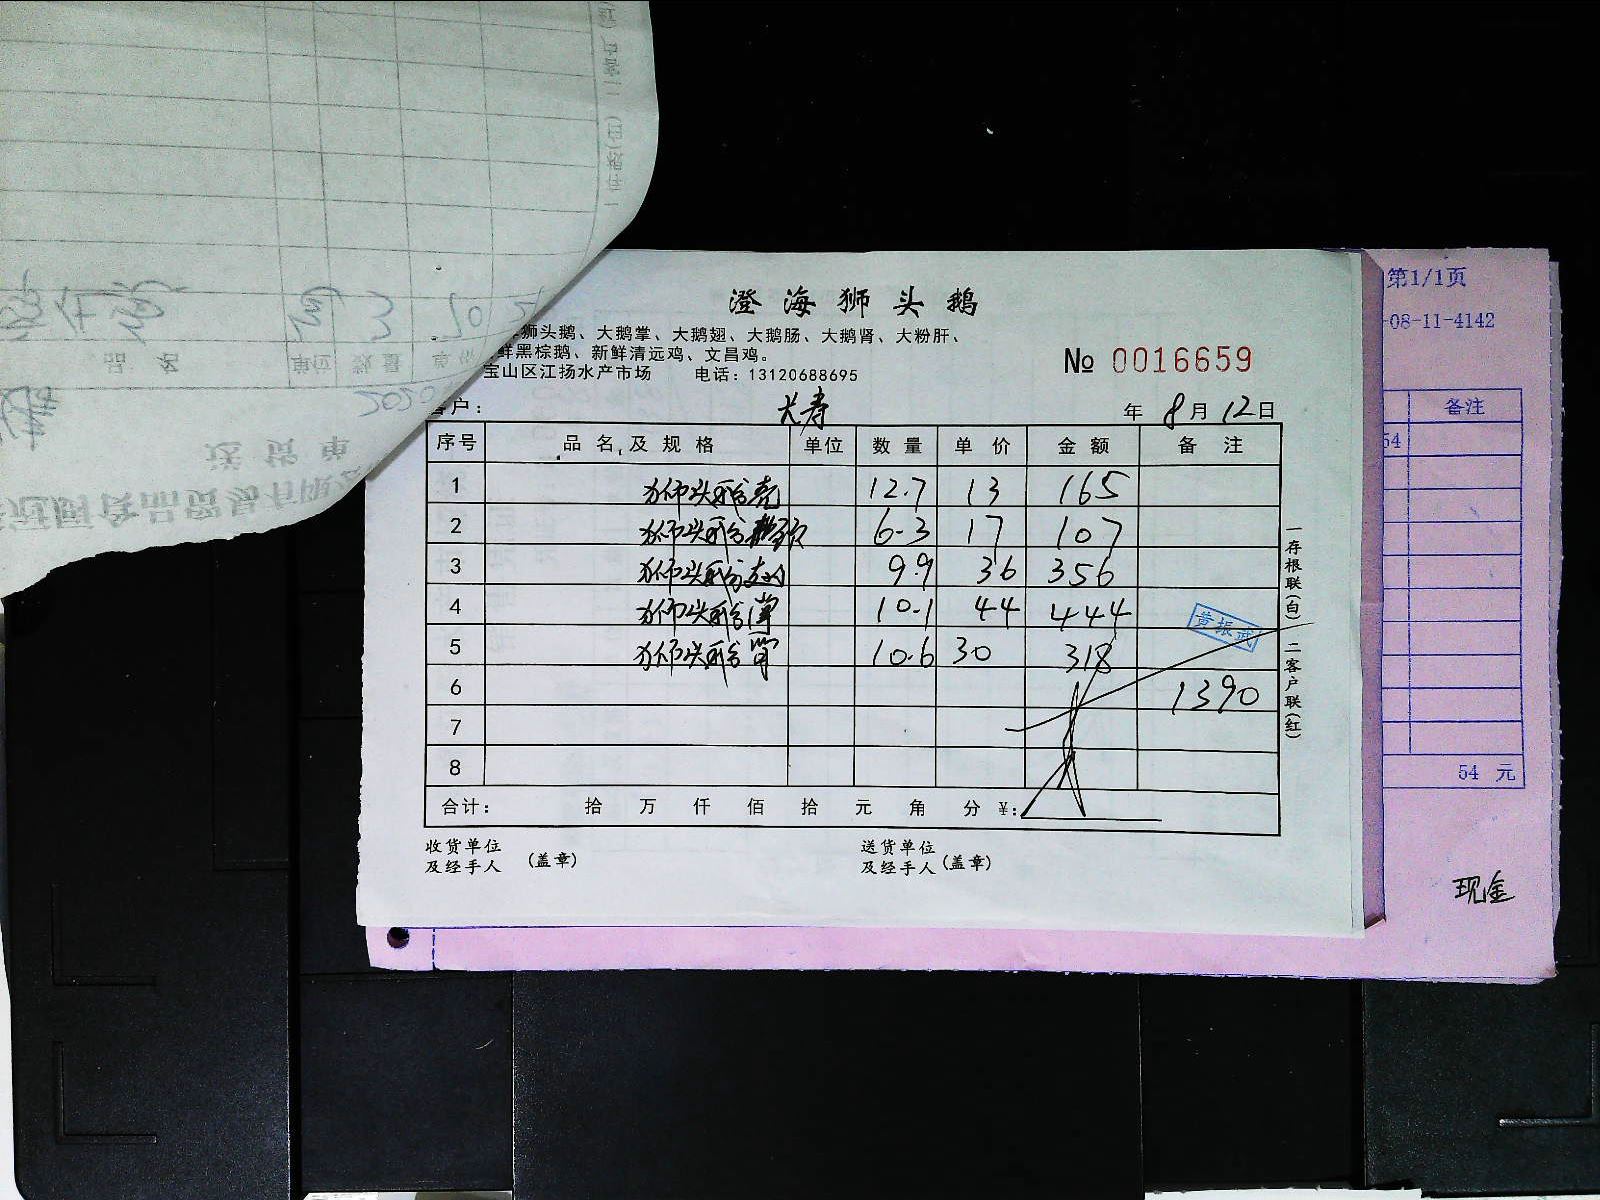 澄海狮头鹅
狮头鹅、大鹅掌、大鹅翅、大鹅肠、大鹅肾、大粉肝、
鲜黑棕鹅、新鲜清远鸡、文昌鸡。
宝山区江扬水产市场 电话：13120688695
№ 0016659
客户： 长寿 年 8 月 12 日
序号 品名及规格 单位 数量 单价 金额 备注
1 狮头鹅壳 12.7 13 165
2 狮头鹅 6.3 17 107
3 狮头鹅 9.9 36 356
4 狮头鹅掌 10.1 44 444
5 狮头鹅肾 10.6 30 318
6 1390
7
8
黄振武
合计： 拾 万 仟 佰 拾 元 角 分 ¥：
收货单位 及经手人 （盖章）
送货单位 及经手人（盖章）
一存根联(白) 二客户联(红)
第1/1页
-08-11-4142
备注
54
54 元
现金
送货单
品名 单位 数量 单价
2020